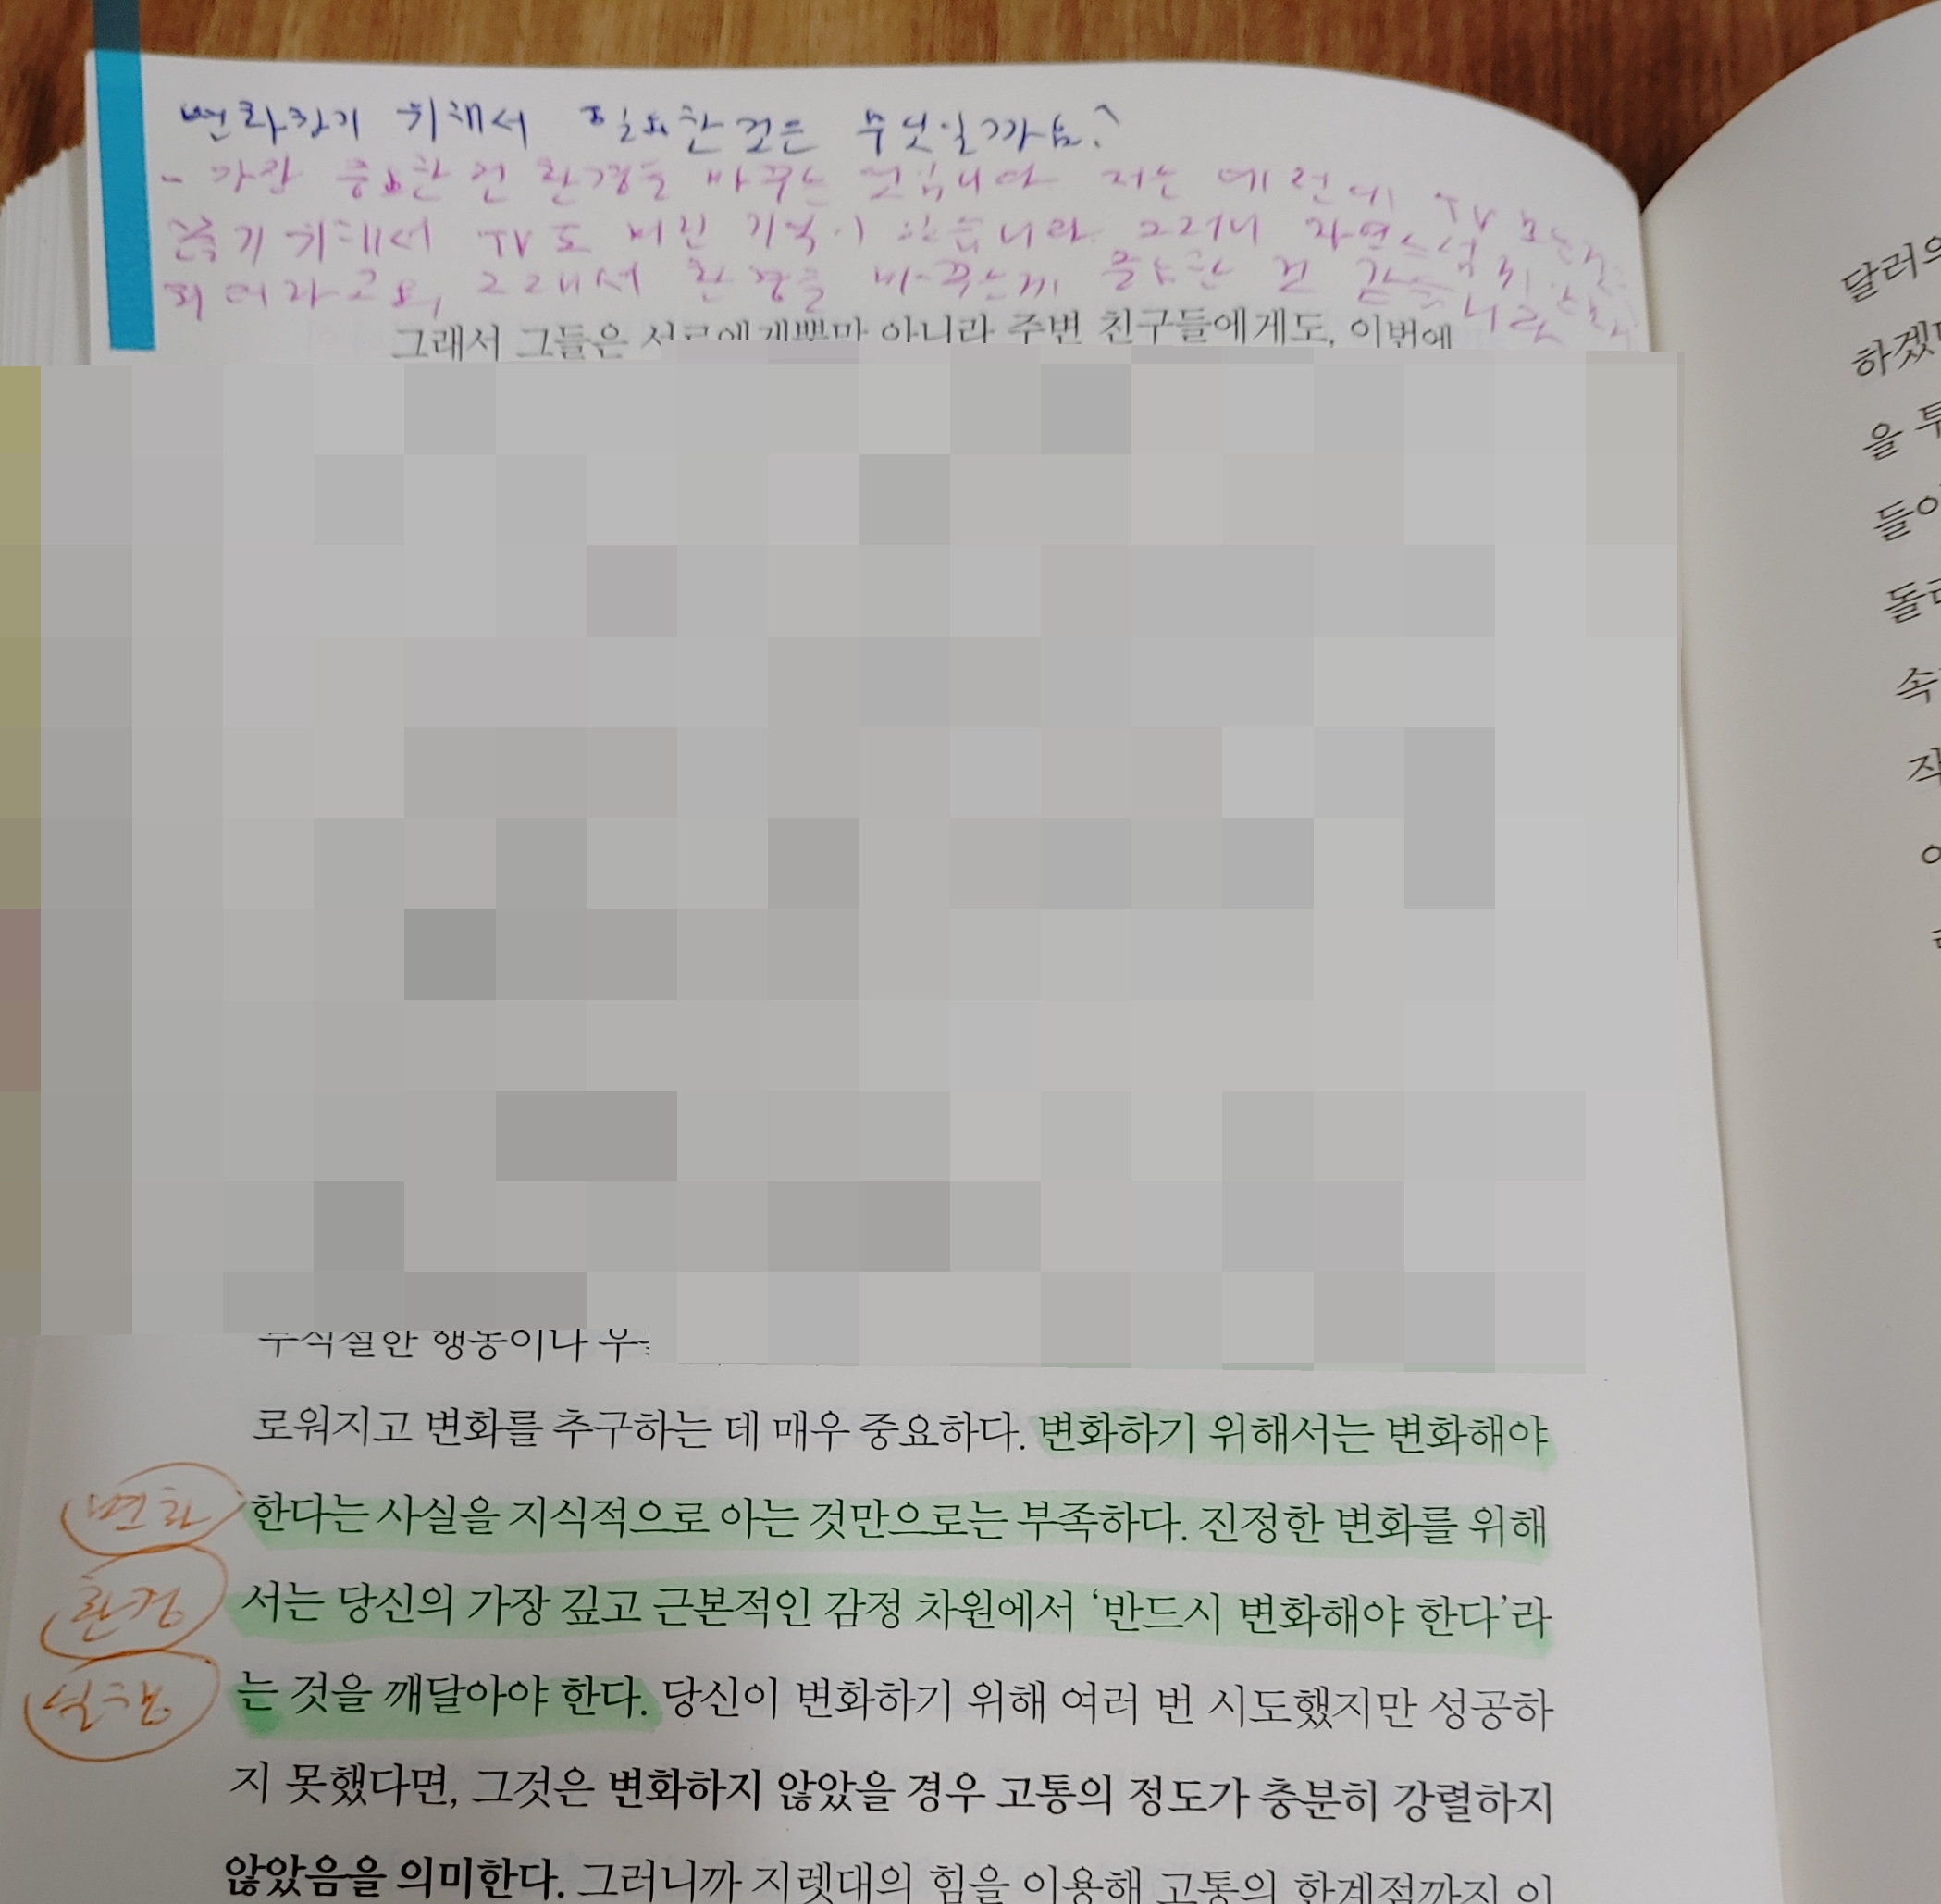 변화하기 위해서 필요한것은 무엇일까요?
- 가장 중요한 건 환경을 바꾸는 것입니다 저는 예전에 TV 보는걸
줄기 위해서 TV도 버린 기억이 있습니다. 그러니 자연스럽게
되더라고요, 그래서 환경을 바꾸는게 중요한 건 같습니다
그래서 그들은 서로에게뿐만 아니라 주변 친구들에게도, 이번에
부적절한 행동이나
로워지고 변화를 추구하는 데 매우 중요하다. 변화하기 위해서는 변화해야
변화
한다는 사실을 지식적으로 아는 것만으로는 부족하다. 진정한 변화를 위해
환경
서는 당신의 가장 깊고 근본적인 감정 차원에서 ‘반드시 변화해야 한다’라
실행
는 것을 깨달아야 한다. 당신이 변화하기 위해 여러 번 시도했지만 성공하
지 못했다면, 그것은 변화하지 않았을 경우 고통의 정도가 충분히 강렬하지
않았음을 의미한다. 그러니까 지렛대의 힘을 이용해 고통의 한계점까지 이
달러의
하겠
을
들이
돌
속
작